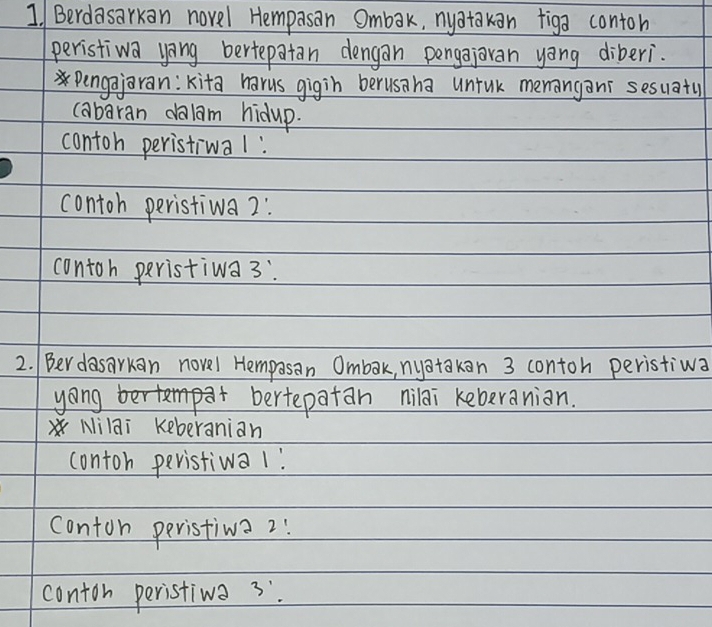 1. Berdasarkan novel Hempasan Ombak, nyatakan tiga contoh
peristiwa yang bertepatan dengan pengajaran yang diberi.
* Pengajaran: Kita harus gigih berusaha untuk menangani sesuatu
cabaran dalam hidup.
contoh peristiwa 1:
contoh peristiwa 2:
contoh peristiwa 3:
2. Berdasarkan novel Hempasan Ombak, nyatakan 3 contoh peristiwa
yang bertempat bertepatan nilai keberanian.
* Nilai keberanian
contoh peristiwa 1:
contoh peristiwa 2:
contoh peristiwa 3: